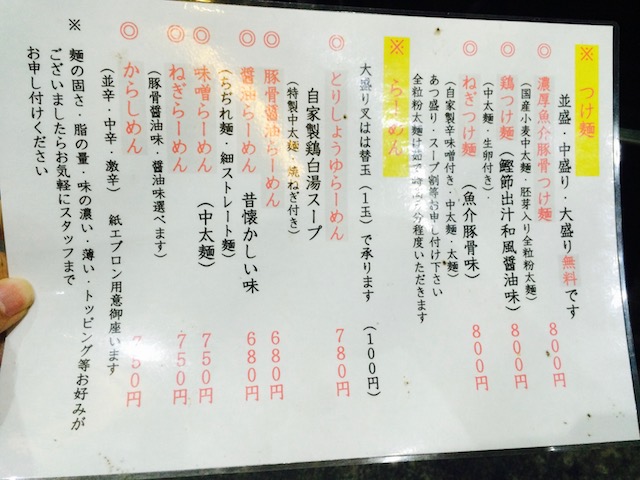 ※ つけ麺
並盛・中盛り・大盛り無料です
◎ 濃厚魚介豚骨つけ麺 800円
(国産小麦中太麺・胚芽入り全粒粉太麺)
◎ 鶏つけ麺(鰹節出汁和風醤油味) 800円
(中太麺・生卵付き)
◎ ねぎつけ麺(魚介豚骨味) 800円
(自家製辛味噌付き・中太麺・太麺)
あつ盛り・スープ割等お申し付け下さい
全粒粉太麺は茹で時間 分程度いただきます
※ らーめん
大盛り又は替玉(1玉)で承ります (100円)
◎ とりしょうゆらーめん 780円
自家製鶏白湯スープ
(特製中太麺・焼ねぎ付き)
◎ 豚骨醤油らーめん 680円
◎ 醤油らーめん 昔懐かしい味 680円
(ちぢれ麺・細ストレート麺)
◎ 味噌らーめん(中太麺) 750円
◎ ねぎらーめん 750円
(豚骨醤油味・醤油味選べます)
◎ からしめん 750円
(並辛・中辛・激辛) 紙エプロン用意御座います
※ 麺の固さ・脂の量・味の濃い・薄い・トッピング等お好みが
ございましたらお気軽にスタッフまで
お申し付けください